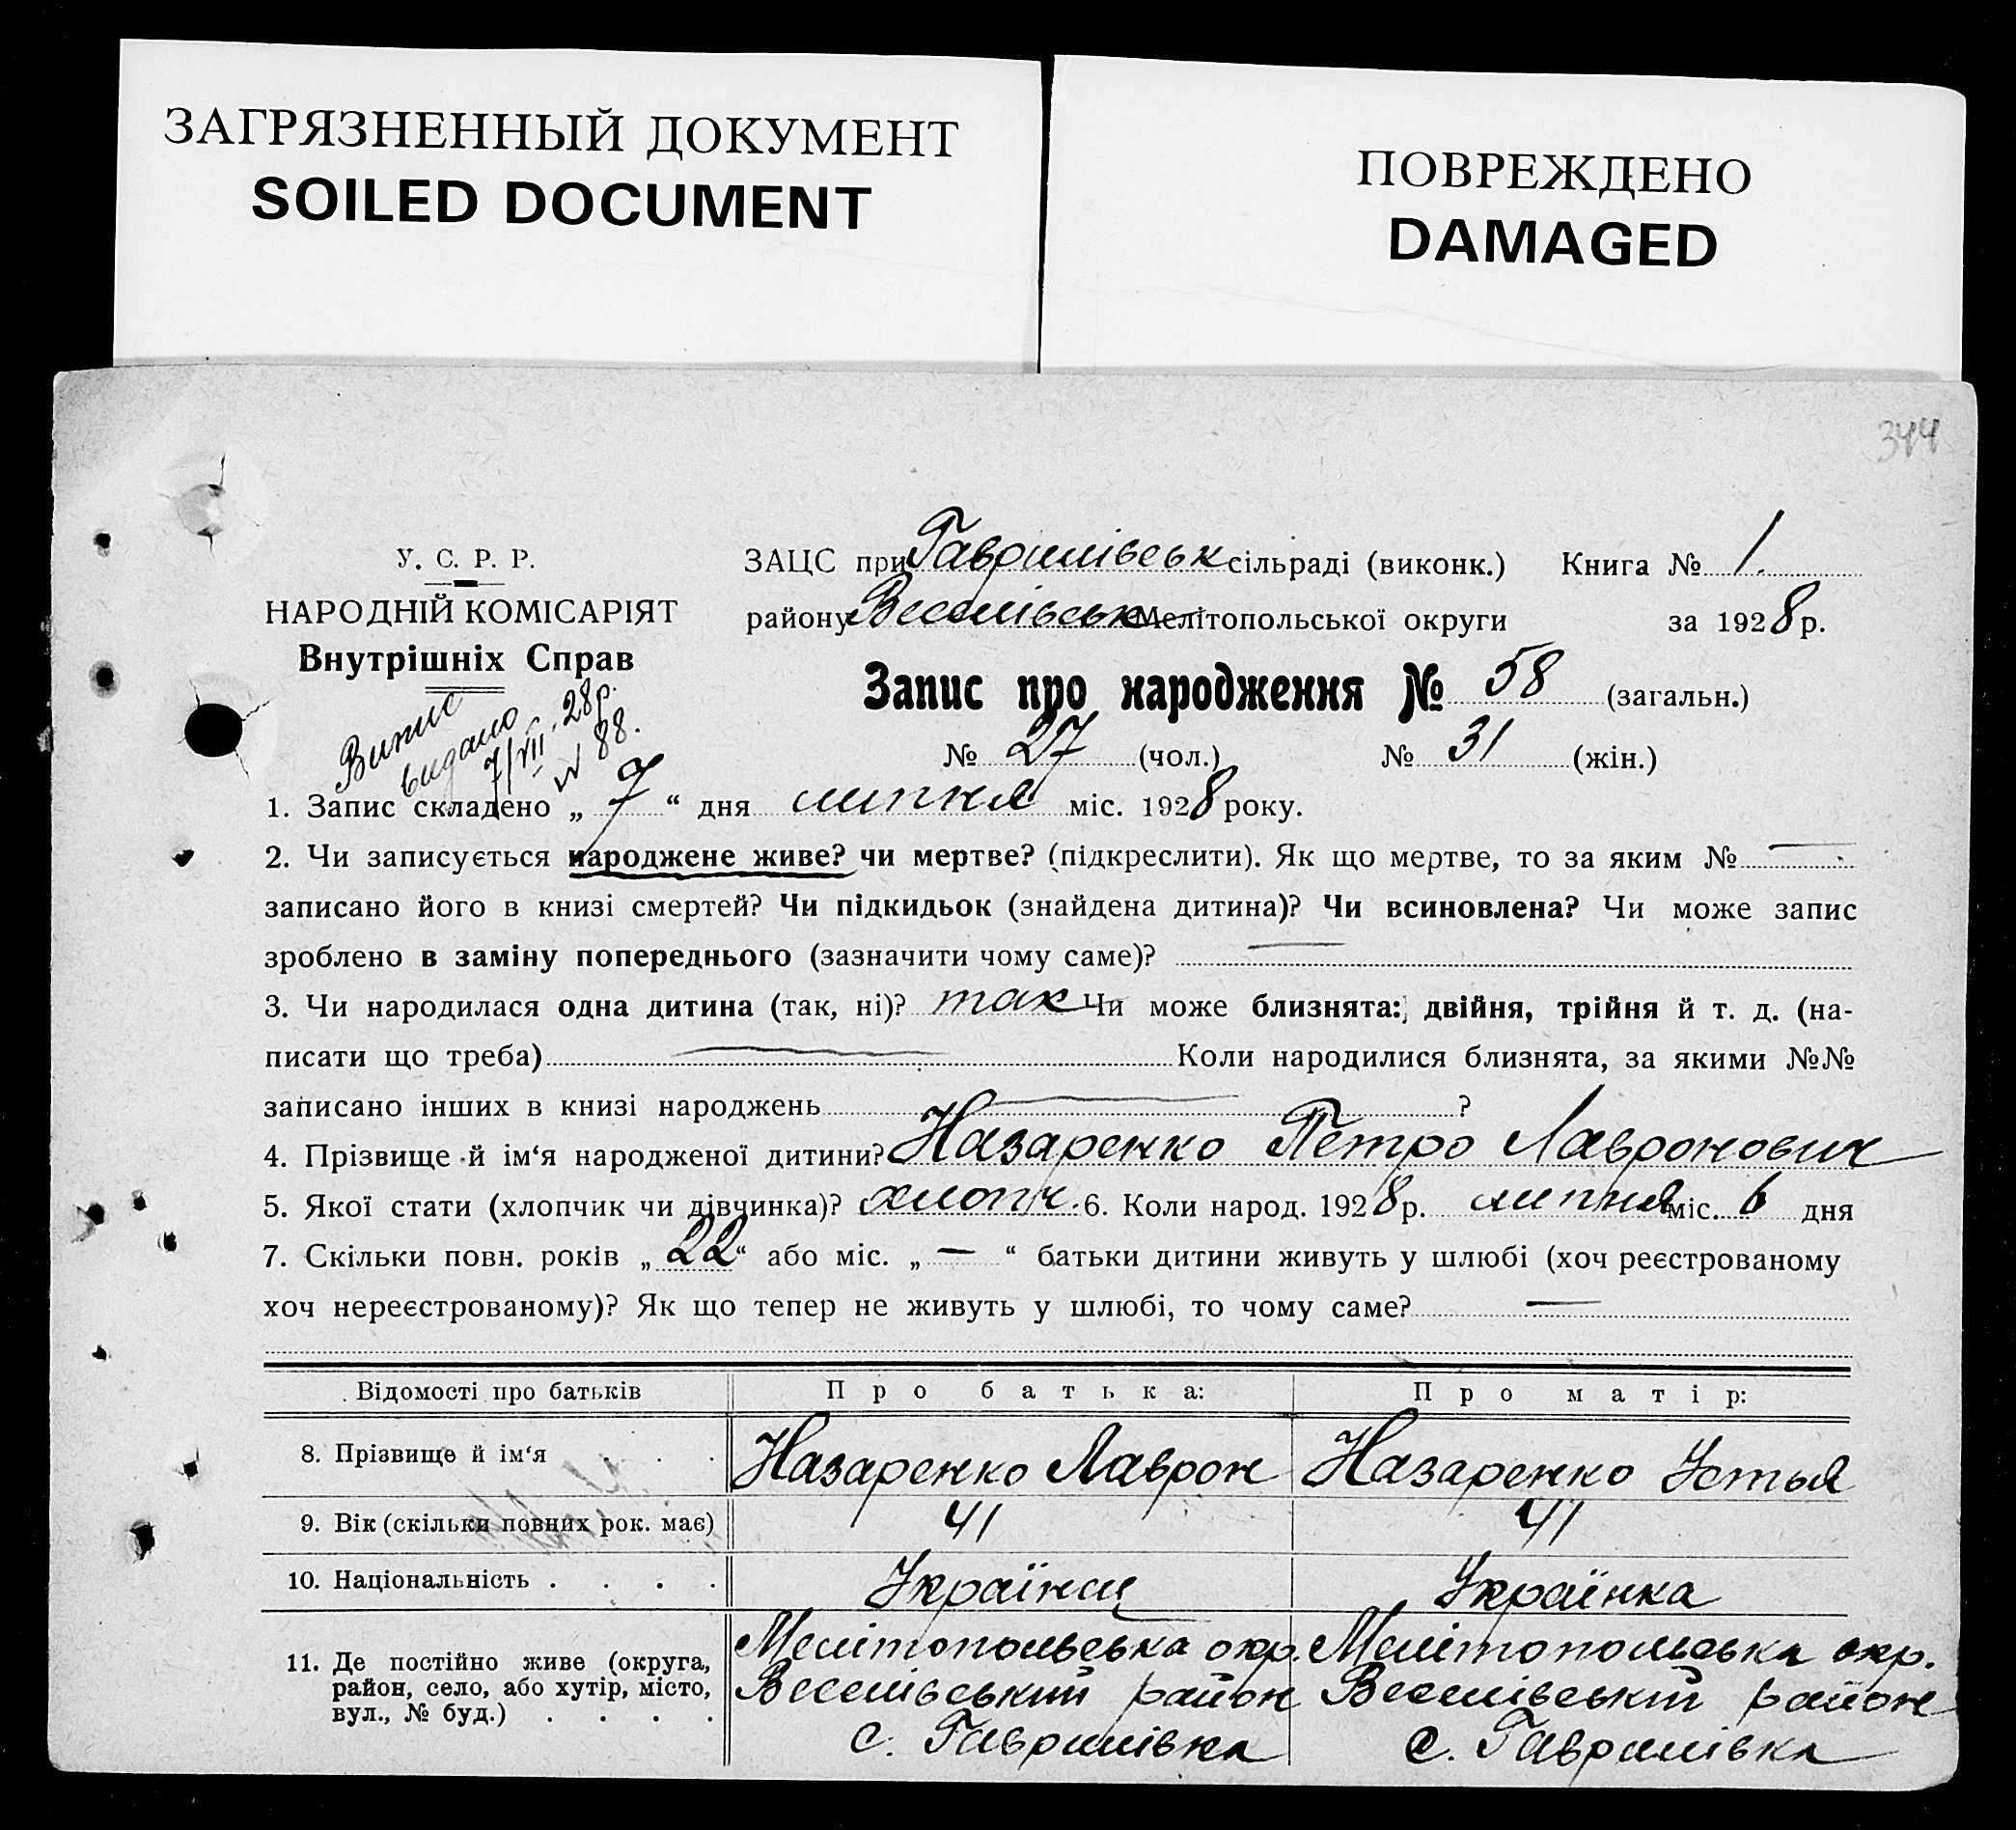 ЗАГРЯЗНЕННЫЙ ДОКУМЕНТ
SOILED DOCUMENT
ПОВРЕЖДЕНО
DAMAGED
344
У. С. Р. Р.
НАРОДНІЙ КОМІСАРІЯТ
Внутрішніх Справ
Витис
видано
7/VII. 28р.
№ 88.
ЗАЦС при Гаврилівськ сільраді (виконк.) Книга № 1.
району Веселівськ Мелітопольської округи за 1928 р.
Запис про народження № 58 (загальн.)
№ 27 (чол.) № 31 (жін.)
1. Запис складено „ 7 “ дня липня міс. 1928 року.
2. Чи записується народжене живе? чи мертве? (підкреслити). Як що мертве, то за яким № —
записано його в книзі смертей? Чи підкидьок (знайдена дитина)? Чи всиновлена? Чи може запис
зроблено в заміну попереднього (зазначити чому саме)? —
3. Чи народилася одна дитина (так, ні)? так Чи може близнята: двійня, трійня й т. д. (на-
писати що треба) — Коли народилися близнята, за якими №№
записано інших в книзі народжень — ?
4. Прізвище й ім‘я народженої дитини? Назаренко Петро Лавронович
5. Якої стати (хлопчик чи дівчинка)? хлопч. 6. Коли народ. 1928 р. липня міс. 6 дня
7. Скільки повн. років „ 22 “ або міс. „ — “ батьки дитини живуть у шлюбі (хоч реєстрованому
хоч нереєстрованому)? Як що тепер не живуть у шлюбі, то чому саме? —
Відомості про батьків Про батька: Про матір:
8. Прізвище й ім‘я . . . Назаренко Лаврон Назаренко Устья
9. Вік (скільки повних рок. має) 41 41
10. Національність . . . . Українец Українка
11. Де постійно живе (округа, Мелітопольська окр. Мелітопольська окр.
район, село, або хутір, місто, Веселівський район Веселівський район
вул., № буд.) . . . . с. Гаврилівка с. Гаврилівка